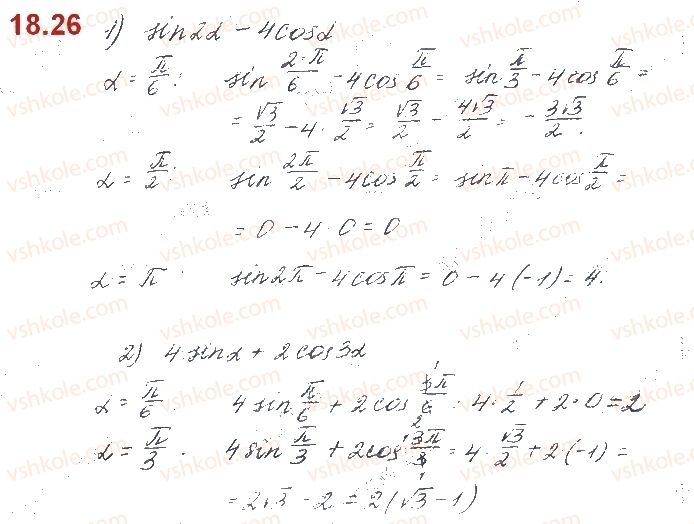 18.26 1) sin2α − 4cosα
α = π/6: sin 2·π/6 − 4cos π/6 = sin π/3 − 4cos π/6 =
= √3/2 − 4 · √3/2 = √3/2 − 4√3/2 = − 3√3/2.
α = π/2: sin 2π/2 − 4cos π/2 = sinπ − 4cos π/2 =
= 0 − 4 · 0 = 0
α = π sin2π − 4cosπ = 0 − 4(−1) = 4.
2) 4sinα + 2cos3α
α = π/6 4sin π/6 + 2cos 3π/6 · 4 · 1/2 + 2·0 = 2
α = π/3 . 4sin π/3 + 2cos 3π/3 = 4 · √3/2 + 2(−1) =
= 2√3 − 2 = 2(√3 − 1)
vshkole.com